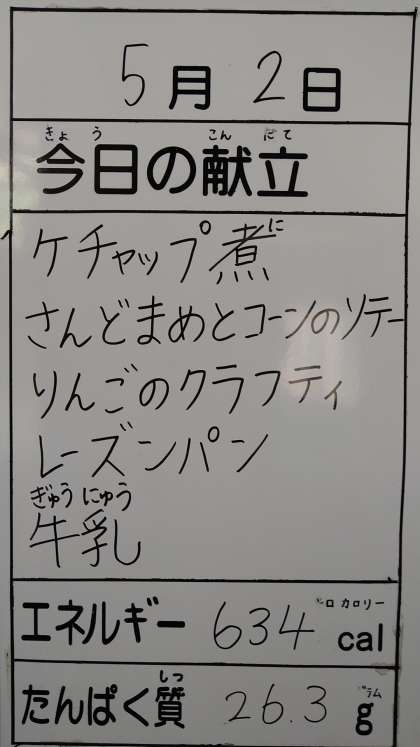 5月2日
きょう こんだて
今日の献立
に
ケチャップ煮
さんどまめとコーンのソテー
りんごのクラフティ
レーズンパン
ぎゅうにゅう
牛乳
カロリー
エネルギー 634 cal
しつ グラム
たんぱく質 26.3 g